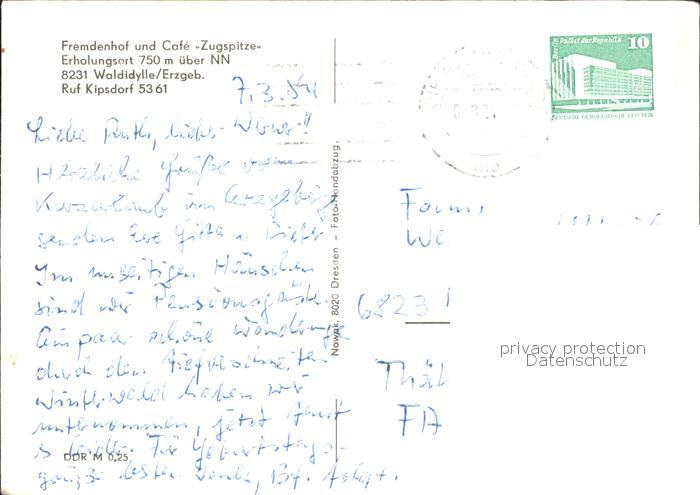 Fremdenhof und Café »Zugspitze«
Erholungsort 750 m über NN
8231 Waldidylle/Erzgeb.
Ruf Kipsdorf 53 61
7.3.84
Liebe Ruth, lieber Werner!!
Herzliche Grüße vom
Kurzurlaub im Erzgebirge
senden Eve Gitta u. Dieter
Im umseitigen Häuschen
sind wir Pensionsgäste.
Ein paar schöne Wanderungen
durch den tiefverschneiten
Winterwald haben wir
unternommen, jetzt taut
s leider. Für Geburtstags-
grüße besten Dank, Brf. folgt.
DDR M 0,25
Nowak, 8020 Dresden – Foto-Handabzug
Berlin Palast der Republik
10
DEUTSCHE DEMOKRATISCHE REPUBLIK
Fam.
We
6823
Thäl
FIA
privacy protection
Datenschutz